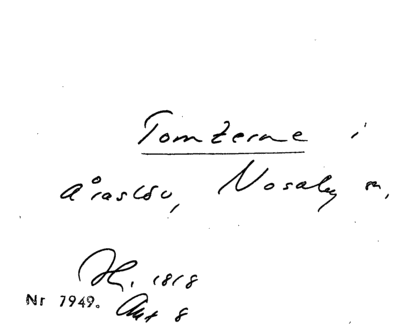 Tomterne i
Åraslöv, Nosaby sn,
1818
Nr 7949. Akt 8